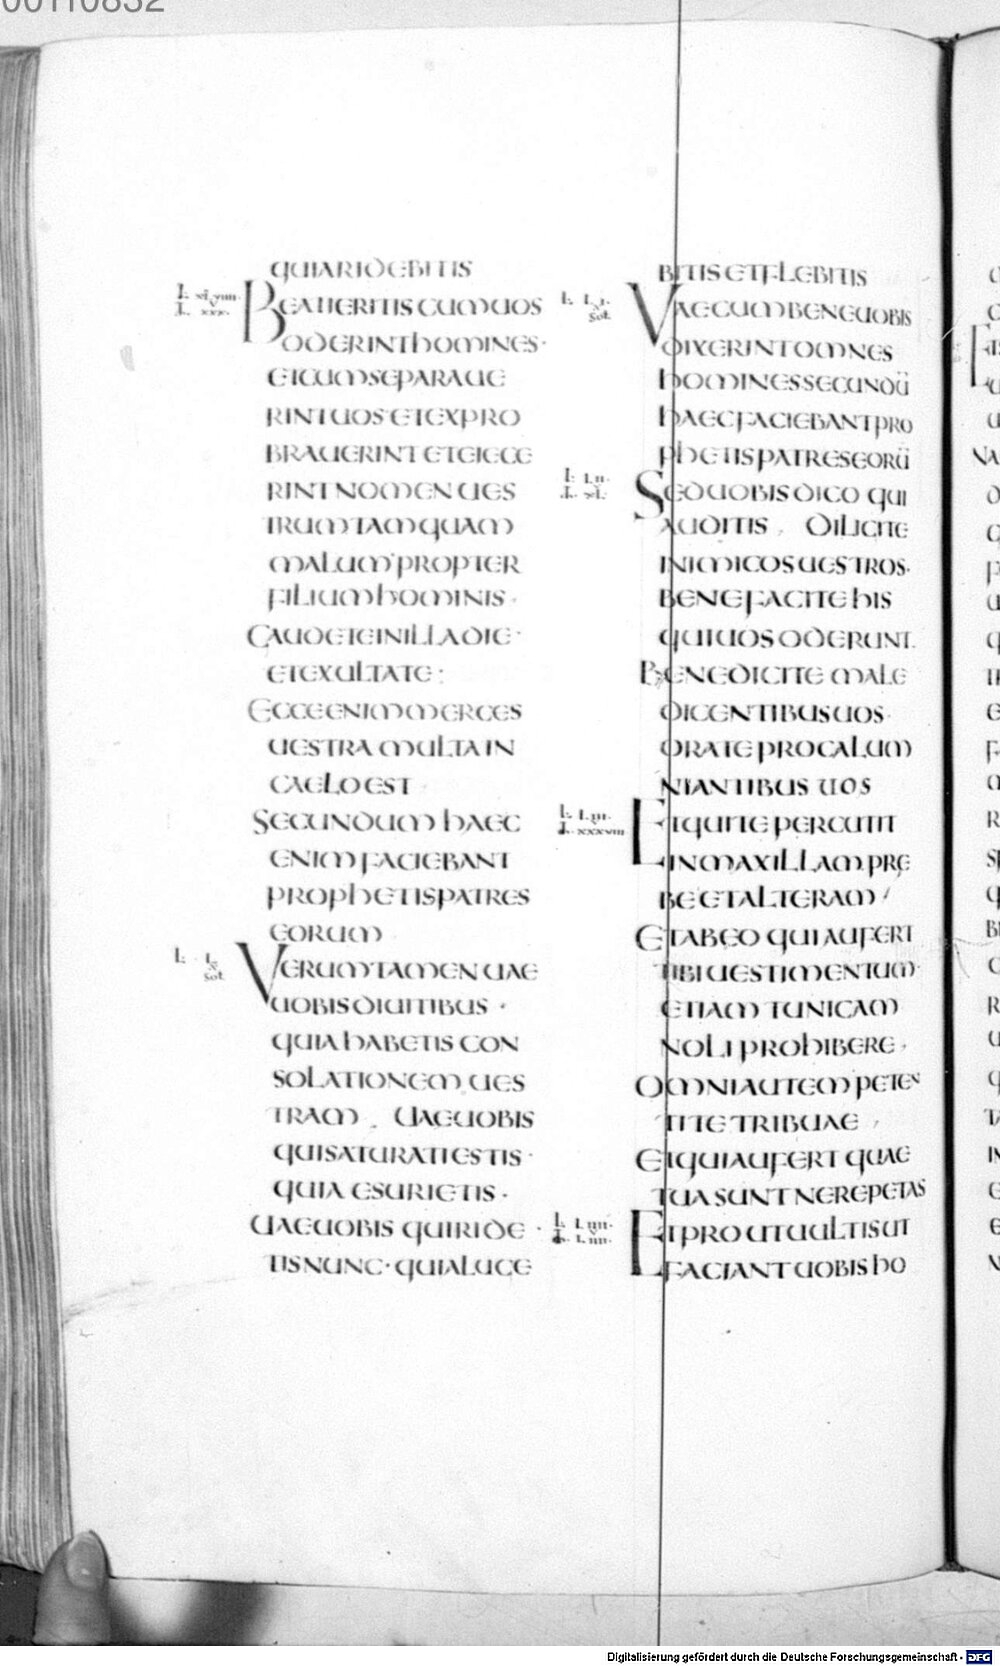 00110832
QUIARIDEBITIS
L. XLVIIII.
L. XXX.
BEATIERITIS CUMUOS
ODERINTHOMINES·
ETCUMSEPARAUE
RINTUOS ETEXPRO
BRAUERINT ETEIECE
RINT NOMEN UES
TRUMTAMQUAM
MALUM PROPTER
FILIUMHOMINIS·
GAUDETEINILLADIE·
ETEXULTATE·
ECCEENIMMERCES
UESTRA MULTA IN
CAELOEST·
SECUNDUM HAEC
ENIM FACIEBANT
PROPHETISPATRES
EORUM
L. L
X
sol.
VERUMTAMEN UAE
UOBISDIUITIBUS·
QUIAHABETIS CON
SOLATIONEM UES
TRAM. UAEUOBIS
QUISATURATIESTIS·
QUIA ESURIETIS·
UAEUOBIS QUIRIDE·
TISNUNC·QUIALUGE
BITISETFLEBITIS
L. L.I.
X
sol.
VAECUMBENEUOBIS
DIXERINTOMNES
HOMINESSECUNDŪ
HAECFACIEBANTPRO
PHETISPATRESEORŪ
L. L.II.
L. XL.
SEDUOBISDICO QUI
AUDITIS. DILIGITE
INIMICOSUESTROS·
BENEFACITE HIS
QUIUOSODERUNT.
BENEDICITE MALE
DICENTIBUSUOS·
ORATEPROCALUM
NIANTIBUS UOS
L. L.III.
L. XXXVIII
ETQUITE PERCUTIT
INMAXILLAM.PRE
BEETALTERAM/
ETABEO QUIAUFERT
TIBIUESTIMENTUM·
ETIAM TUNICAM
NOLIPROHIBERE·
OMNIAUTEMPETEN
TITETRIBUAE,
ETQUIAUFERT QUAE
TUASUNTNEREPETAS
L. L.IIII.
L. L.IIII.
ETPROUTUULTISUT
FACIANTUOBISHO
Digitalisierung gefördert durch die Deutsche Forschungsgemeinschaft - DFG